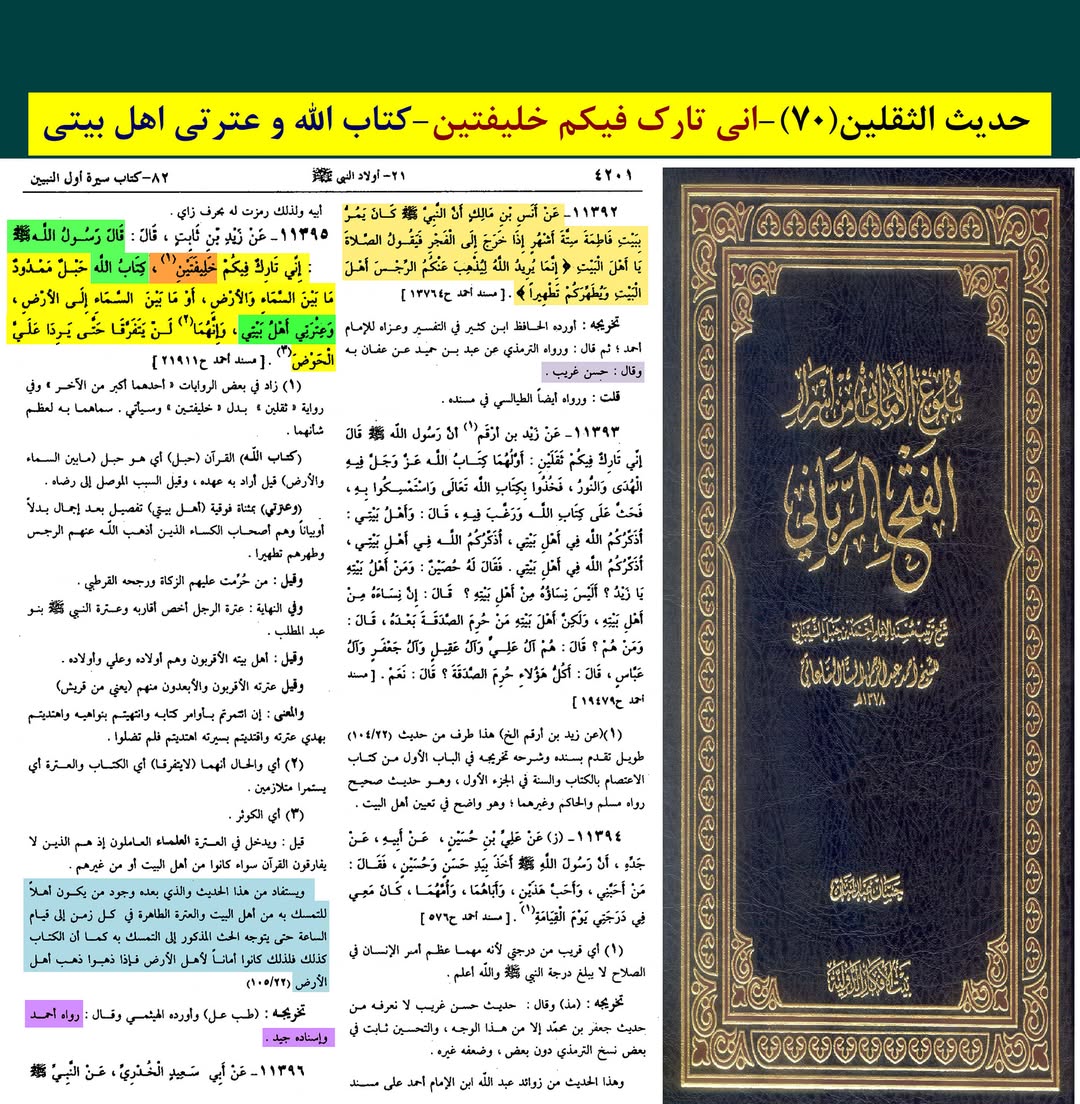 حديث الثقلين(۷۰)-انی تارک فیکم خلیفتین-کتاب الله و عترتی اهل بیتی
٤٢٠١
٢١- أولاد النبي ﷺ
٨٢-كتاب سيرة أول النبيين
١١٣٩٢- عَنْ أَنَسِ بْنِ مَالِكٍ أَنَّ النَّبِيَّ ﷺ كَانَ يَمُرُّ
بِبَيْتِ فَاطِمَةَ سِتَّةَ أَشْهُرٍ إِذَا خَرَجَ إِلَى الْفَجْرِ فَيَقُولُ الصَّلاةَ
يَا أَهْلَ الْبَيْتِ ﴿ إِنَّمَا يُرِيدُ اللَّهُ لِيُذْهِبَ عَنْكُمُ الرِّجْسَ أَهْلَ
الْبَيْتِ وَيُطَهِّرَكُمْ تَطْهِيراً ﴾ . [ مسند أحمد ح١٣٧٦٤ ]
تخريجه : أورده الحافظ ابن كثير في التفسير وعزاه للإمام
أحمد ؛ ثم قال : ورواه الترمذي عن عبد بن حميد عن عفان به
وقال : حسن غريب .
قلت : ورواه أيضاً الطيالسي في مسنده .
١١٣٩٣- عَنْ زَيْدِ بن أَرْقَم(١) أنَّ رَسُولَ الله ﷺ قَالَ
إِنِّي تَارِكٌ فِيكُمْ ثَقَلَيْنِ : أَوَّلُهُمَا كِتَـابُ اللَّـهِ عَـزَّ وَجَـلَّ فِيـهِ
الْهُدَى وَالنُّورُ ، فَخُذُوا بِكِتَابِ اللَّه تَعَالَى وَاسْتَمْسِكُوا بِهِ ،
فَحَثَّ عَلَى كِتَابِ اللَّـهِ وَرَغَّبَ فِيـهِ ، قَالَ : وَأَهْلُ بَيْتِي :
أُذَكِّرُكُمُ اللَّهَ فِي أَهْلِ بَيْتِي ، أُذَكِّرُكُمُ اللَّـهَ فِـي أَهْـلِ بَيْتِـي ،
أُذَكِّرُكُمُ اللَّهَ فِي أَهْلِ بَيْتِي . فَقَالَ لَهُ حُصَيْنٌ : وَمَنْ أَهْلُ بَيْتِهِ
يَا زَيْدُ ؟ أَلَيْسَ نِسَاؤُهُ مِنْ أَهْلِ بَيْتِهِ ؟ قَالَ : إِنَّ نِسَاءَهُ مِـنْ
أَهْلِ بَيْتِهِ ، وَلَكِنَّ أَهْلَ بَيْتِهِ مَنْ حُرِمَ الصَّدَقَةَ بَعْدَهُ ، قَالَ :
وَمَنْ هُمْ ؟ قَالَ : هُمْ آلُ عَلِـيٍّ وَآلُ عَقِيلٍ وَآلُ جَعْفَرٍ وَآلُ
عَبَّاسٍ ، قَالَ : أَكُلُّ هَؤُلاءِ حُرِمَ الصَّدَقَةَ ؟ قَالَ : نَعَمْ . [ مسند
أحمد ح١٩٤٧٩ ]
(١)(عن زيد بن أرقم الخ) هذا طرف من حديث (١٠٤/٢٢)
طويل تقدم بسنده وشرحه تخريجه في الباب الأول من كتاب
الاعتصام بالكتاب والسنة في الجزء الأول ، وهـو حديـث صحيـح
رواه مسلم والحاكم وغيرهما ؛ وهو واضح في تعيين أهل البيت .
١١٣٩٤- (ز) عَنْ عَلِيِّ بْنِ حُسَيْنٍ ، عَنْ أَبِيهِ ، عَنْ
جَدِّهِ ، أَنَّ رَسُولَ اللَّهِ ﷺ أَخَذَ بِيَدِ حَسَنٍ وَحُسَيْنٍ ، فَقَالَ :
مَنْ أَحَبَّنِي ، وَأَحَبَّ هَذَيْنِ ، وَأَبَاهُمَا ، وَأُمَّهُمَا ، كَانَ مَعِي
فِي دَرَجَتِي يَوْمَ الْقِيَامَةِ(١) . [ مسند أحمد ح٥٧٦ ]
(١) أي قريب من درجتي لأنه مهما عظم أمر الإنسان في
الصلاح لا يبلغ درجة النبي ﷺ واللّه أعلم .
تخريجه : (مذ) وقال : حديث حسن غريب لا نعرفه من
حديث جعفر بن محمّد إلا من هـذا الوجه ، والتحسين ثابت في
بعض نسخ الترمذي دون بعض ، وضعفه غيره .
وهذا الحديث من زوائد عبد اللّه ابن الإمام أحمد على مسند
أبيه ولذلك رمزت له بحرف زاي .
١١٣٩٥- عَنْ زَيْدِ بْنِ ثَابِتٍ ، قَالَ : قَالَ رَسُولُ اللَّهِ ﷺ
: إِنِّي تَارِكٌ فِيكُمْ خَلِيفَتَيْنِ(١) ، كِتَابُ اللَّهِ حَبْلٌ مَمْدُودٌ
مَا بَيْنَ السَّمَاءِ وَالأَرْضِ ، أَوْ مَا بَيْنَ السَّمَاءِ إِلَى الأَرْضِ ،
وَعِتْرَتِي أَهْلُ بَيْتِي ، وَإِنَّهُمَا(٢) لَنْ يَتَفَرَّقَا حَتَّى يَرِدَا عَلَيَّ
الْحَوْضَ(٣) . [ مسند أحمد ح٢١٩١١ ]
(١) زاد في بعض الروايات « أحدهما أكبر من الآخـر » وفي
رواية « ثقلين » بـدل « خليفتـين » وسيأتي . سماهمـا بـه لعظـم
شأنهما .
(كتـاب اللّـه) القرآن (حبل) أي هو حبل (مابين السماء
والأرض) قيل أراد به عهده ، وقيل السبب الموصل إلى رضاه .
(وعترتي) بمثناة فوقية (أهل بيتي) تفصيل بعد إجمال بدلاً
أوبياناً وهم أصحاب الكساء الذين أذهب اللّه عنهم الرجس
وطهرهم تطهيرا .
وقيل : من حُرِّمت عليهم الزكاة ورجحه القرطبي .
وفي النهاية : عترة الرجل أخص أقاربه وعترة النبي ﷺ بنو
عبد المطلب .
وقيل : أهل بيته الأقربون وهم أولاده وعلي وأولاده .
وقيل عترته الأقربون والأبعدون منهم (يعني من قريش)
والمعنى : إن ائتمرتم بـأوامر كتابـه وانتهيتم بنواهيـه واهتديتم
بهدي عترته واقتديتم بسيرته اهتديتم فلم تضلوا .
(٢) أي والحال أنهمـا (لايتفرقـا) أي الكتـاب والعـترة أي
يستمرا متلازمين .
(٣) أي الكوثر .
قيل : ويدخل في العـترة العلماء العاملون إذ هـم الذيـن لا
يفارقون القرآن سواء كانوا من أهل البيت أو من غيرهم .
ويستفاد من هذا الحديث والذي بعده وجود من يكـون أهـلاً
للتمسك به من أهل البيت والعترة الطاهرة في كل زمـن إلى قيام
الساعة حتى يتوجه الحث المذكور إلى التمسك به كمـا أن الكتاب
كذلك فلذلك كانوا أمانـاً لأهـل الأرض فـإذا ذهبـوا ذهـب أهـل
الأرض (١٠٥/٢٢)
تخريجـه : (طب عـل) وأورده الهيثمي وقـال : رواه أحمـد
وإسناده جيد .
١١٣٩٦- عَنْ أَبِي سَعِيدٍ الْخُدْرِيِّ ، عَنِ النَّبِيِّ ﷺ
بُلوغ الأماني من أسرار
الفتح الرباني
شرح ترتيب مسند الإمام أحمد بن حنبل الشيباني
للشيخ أحمد عبد الرحمن البنا الساعاتي
١٣٧٨هـ
حسان عبد المنان
بيت الأفكار الدولية